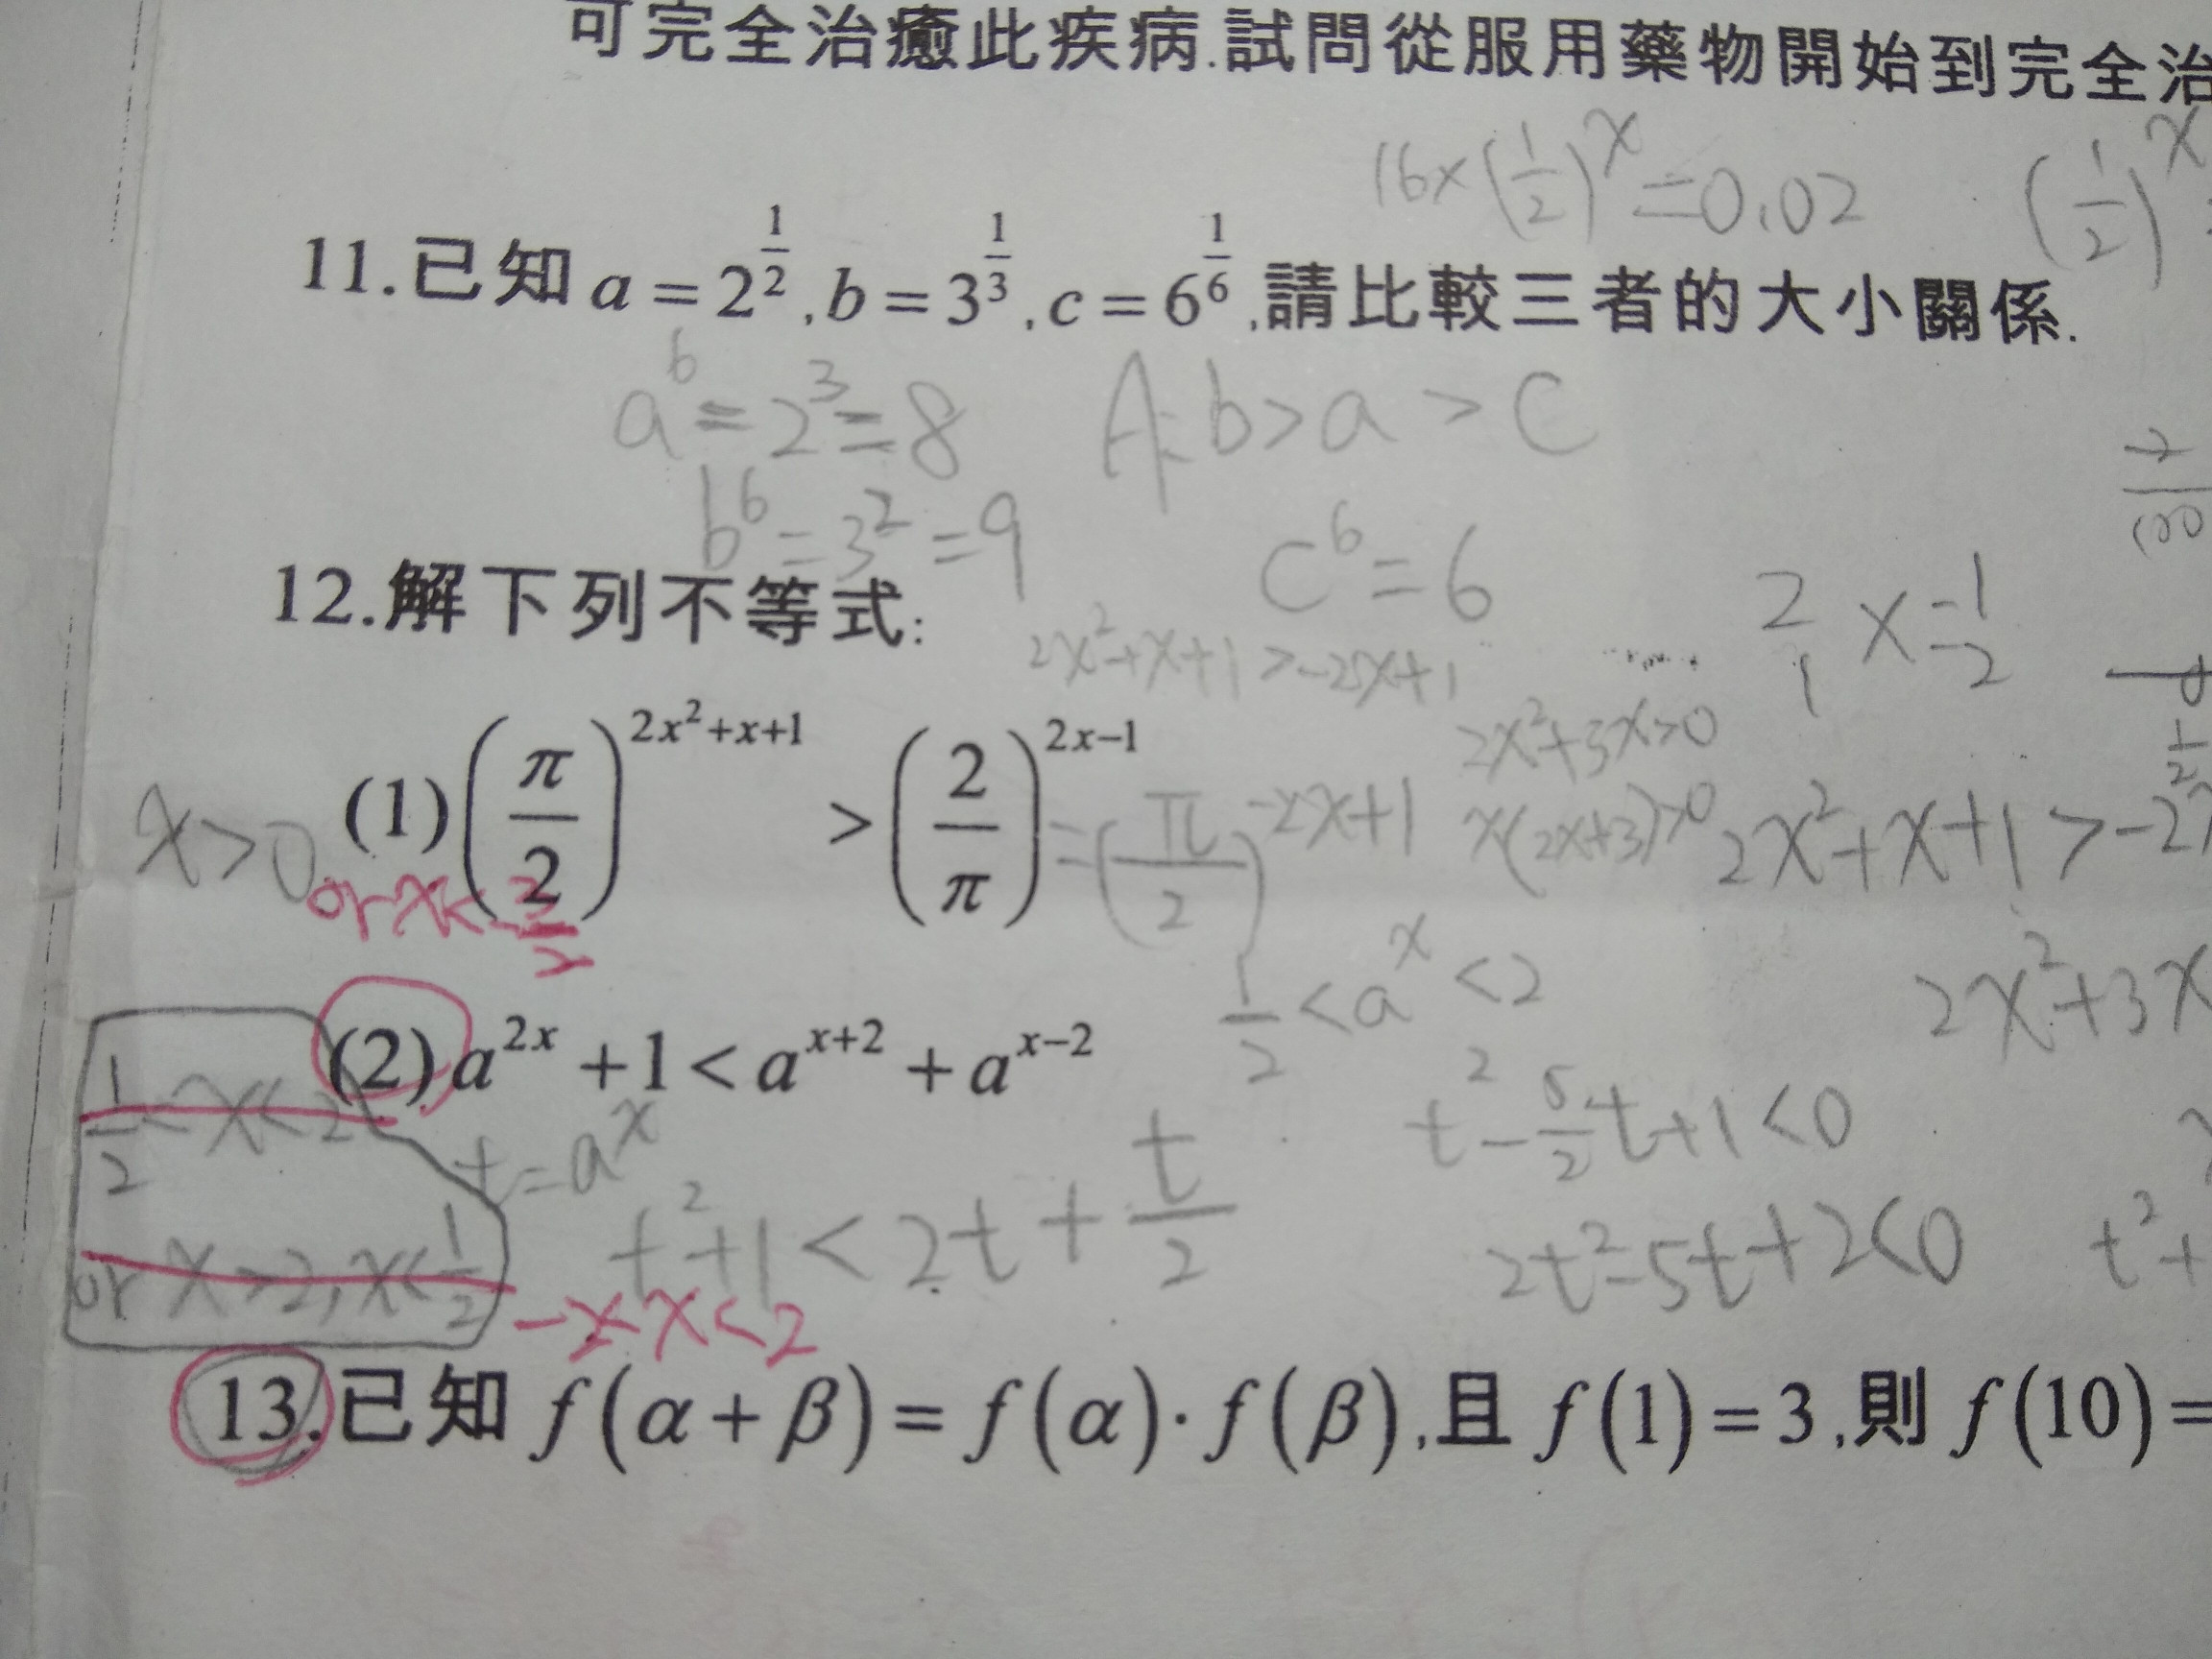 可完全治癒此疾病.試問從服用藥物開始到完全治
16×(1/2)^x=0.02 (1/2)^x
11.已知 a = 2^(1/2), b = 3^(1/3), c = 6^(1/6), 請比較三者的大小關係.
a^6=2^3=8 A: b>a>c
b^6=3^2=9 c^6=6
12.解下列不等式:
2x^2+x+1>-2x+1
2x^2+3x>0
(1) (π/2)^(2x^2+x+1) > (2/π)^(2x-1) =(π/2)^(-2x+1)
x(2x+3)>0 2x^2+x+1>-2x
x>0 or x<-3/2
1/2<a^x<2 2x^2+3x
(2) a^(2x) + 1 < a^(x+2) + a^(x-2)
1/2<x<2
t=a^x t^2-5/2t+1<0
t^2+1<2t+t/2 2t^2-5t+2<0 t^2+
or x>2, x<1/2
x<2
13.已知 f(α+β) = f(α)·f(β), 且 f(1) = 3, 則 f(10) =